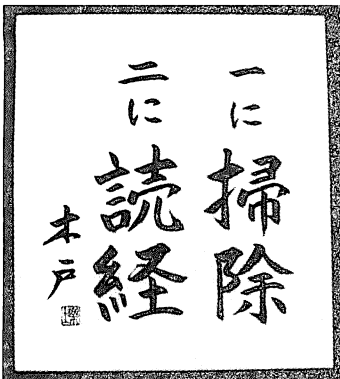 一に掃除
二に読経
木戸